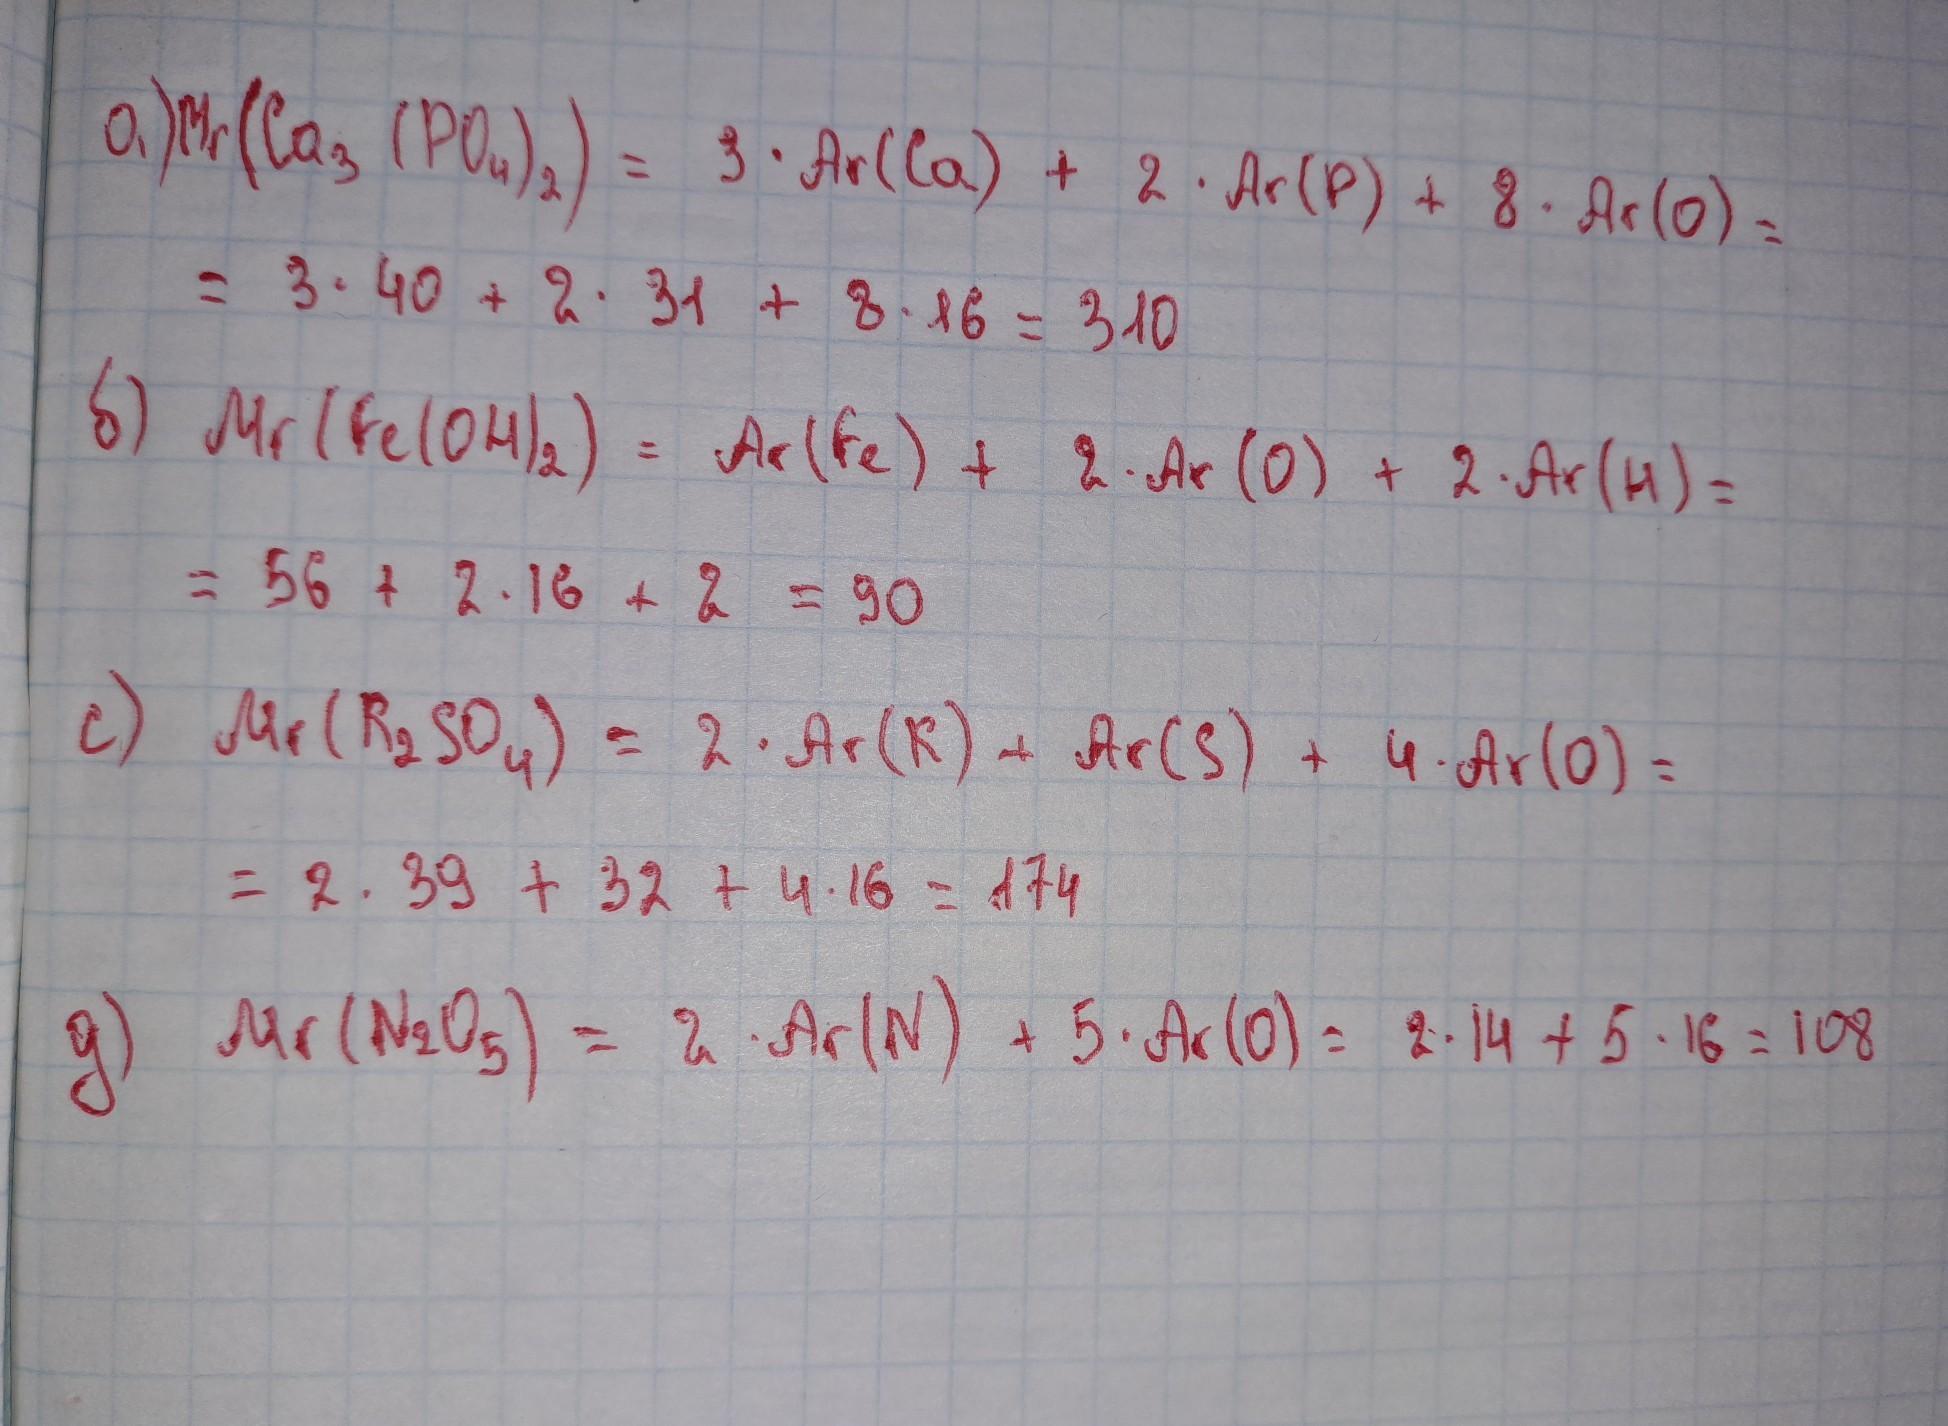 а) Mr(Ca₃(PO₄)₂) = 3 · Ar(Ca) + 2 · Ar(P) + 8 · Ar(O) =
= 3 · 40 + 2 · 31 + 8 · 16 = 310
б) Mr(Fe(OH)₂) = Ar(Fe) + 2 · Ar(O) + 2 · Ar(H) =
= 56 + 2 · 16 + 2 = 90
с) Mr(K₂SO₄) = 2 · Ar(K) + Ar(S) + 4 · Ar(O) =
= 2 · 39 + 32 + 4 · 16 = 174
д) Mr(N₂O₅) = 2 · Ar(N) + 5 · Ar(O) = 2 · 14 + 5 · 16 = 108